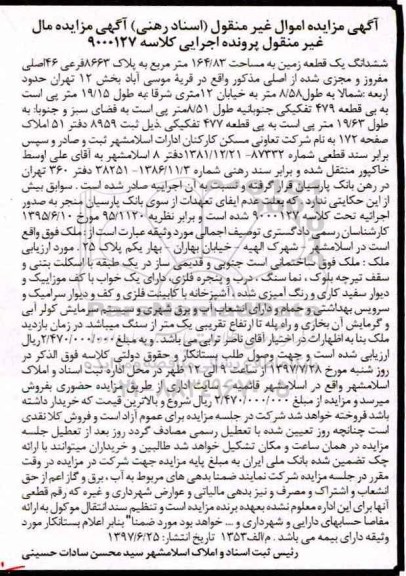 آگهی مزایده اموال غیر منقول (اسناد رهنی) آگهی مزایده مال
غیر منقول پرونده اجرایی کلاسه ۹۰۰۰۱۲۷
ششدانگ یک قطعه زمین به مساحت ۱۶۴/۸۳ متر مربع به پلاک ۸۶۶۳فرعی ۴۶اصلی
مفروز و مجزی شده از اصلی مذکور واقع در قریهٔ موسی آباد بخش ۱۲ تهران حدود
اربعه :شمالا به طول۸/۵۸ متر به خیابان ۱۲متری شرقا :به طول ۱۹/۱۵ متر پی است
به پی قطعه ۴۷۹ تفکیکی جنوبابه طول ۸/۵۱متر پی است به فضای سبز و جنوبا: به
طول ۱۹/۶۳ متر پی است به پی قطعه ۴۷۷ تفکیکی .ذیل ثبت ۸۹۵۹ دفتر ۵۱ املاک
صفحه ۱۷۲ به نام شرکت تعاونی مسکن کارکنان ادارات اسلامشهر ثبت و صادر و سپس
برابر سند قطعی شماره ۸۷۳۳۲-۱۳۸۱/۱۲/۲۱ دفتر ۸ اسلامشهر به آقای علی اوسط
خاکپور منتقل شده و برابر سند رهنی شماره ۱۳۸۶/۱۱/۳-۳۸۲۵۱ دفتر ۳۶۰ تهران
در رهن بانک پارسیان قرار گرفته است که به آن اجراییه صادر شده است . سوابق بیش
از این حکایتی ندارد . که به علت عدم ایفای تعهدات از سوی بانک پارسیان منجر به صدور
اجرائیه تحت کلاسه ۹۰۰۰۱۲۷ شده است و برابر نظریه ۹۵/۱۱۲۰ مورخ ۱۳۹۵/۶/۱۰
کارشناسان رسمی دادگستری توصیف اجمالی مورد وثیقه عبارت است از : ملک فوق واقع
است در اسلامشهر – شهرک الهیه – خیابان بهاران – بهار یکم پلاک ۲۵ . مورد ارزیابی
ملک : ملک فوق ساختمانی است جنوبی و قدیمی ساز در یک طبقه با اسکلت بتنی و
سقف تیرچه بلوک ، نما سنگ ، درب و پنجره فلزی، دارای یک خواب با کف موزاییک و
دیوار سفید کاری و رنگ آمیزی شده ، آشپزخانه با کابینت فلزی و کف و دیوار سرامیک و
سرویس بهداشتی و حمام و دارای انشعاب آب و برق شهری و سیستم سرمایش کولر آبی
و گرمایش آن بخاری و راه پله تا ارتفاع تقریبی یک متر از سنگ میباشد. در زمان بازدید
ملک بنا به اظهارات در اختیار آقای ناصر ترابی می باشد . و به مبلغ ۲/۴۷۰/۰۰۰/۰۰۰ریال
ارزیابی شده است و جهت وصول طلب بستانکار و حقوق دولتی کلاسه فوق الذکر در
روز شنبه مورخ ۱۳۹۷/۷/۲۸ از ساعت ۹ الی ۱۲ ظهر در محل اداره ثبت اسناد و املاک
اسلامشهر واقع در اسلامشهر قائمیه – سایت اداری از طریق مزایده حضوری بفروش
میرسد و مزایده از مبلغ ۲/۴۷۰/۰۰۰/۰۰۰ ریال شروع و بالاترین قیمت که خریدار داشته
باشد فروخته خواهد شد شرکت در جلسه مزایده برای عموم آزاد است و فروش کلا نقدی
است چنانچه روز تعیین شده با تعطیل رسمی مصادف گردد روز بعد از تعطیل جلسه
مزایده در همان ساعت و مکان تشکیل خواهد شد طالبین و خریداران میتوانند با ارائه
چک تضمین شده بانک ملی ایران به مبلغ پایه مزایده جهت شرکت در مزایده در وقت
مقرر در جلسه مزایده شرکت نمایند ضمنا بدهی های مربوط به آب ، برق و گاز اعم از حق
انشعاب و اشتراک و مصرف و نیز بدهی مالیاتی و عوارض شهرداری و غیره که رقم قطعی
آنها برای این اداره معلوم نشده بعهده برنده مزایده است و تنظیم سند انتقال موکول به ارائه
مفاصا حسابهای دارایی و شهرداری و ... خواهد بود مورد ضمنا" بنابر اعلام بستانکار مورد
وثیقه دارای بیمه می باشد . م/الف۱۳۵۳ تاریخ انتشار: ۱۳۹۷/۶/۲۵
رئیس ثبت اسناد و املاک اسلامشهر سید محسن سادات حسینی